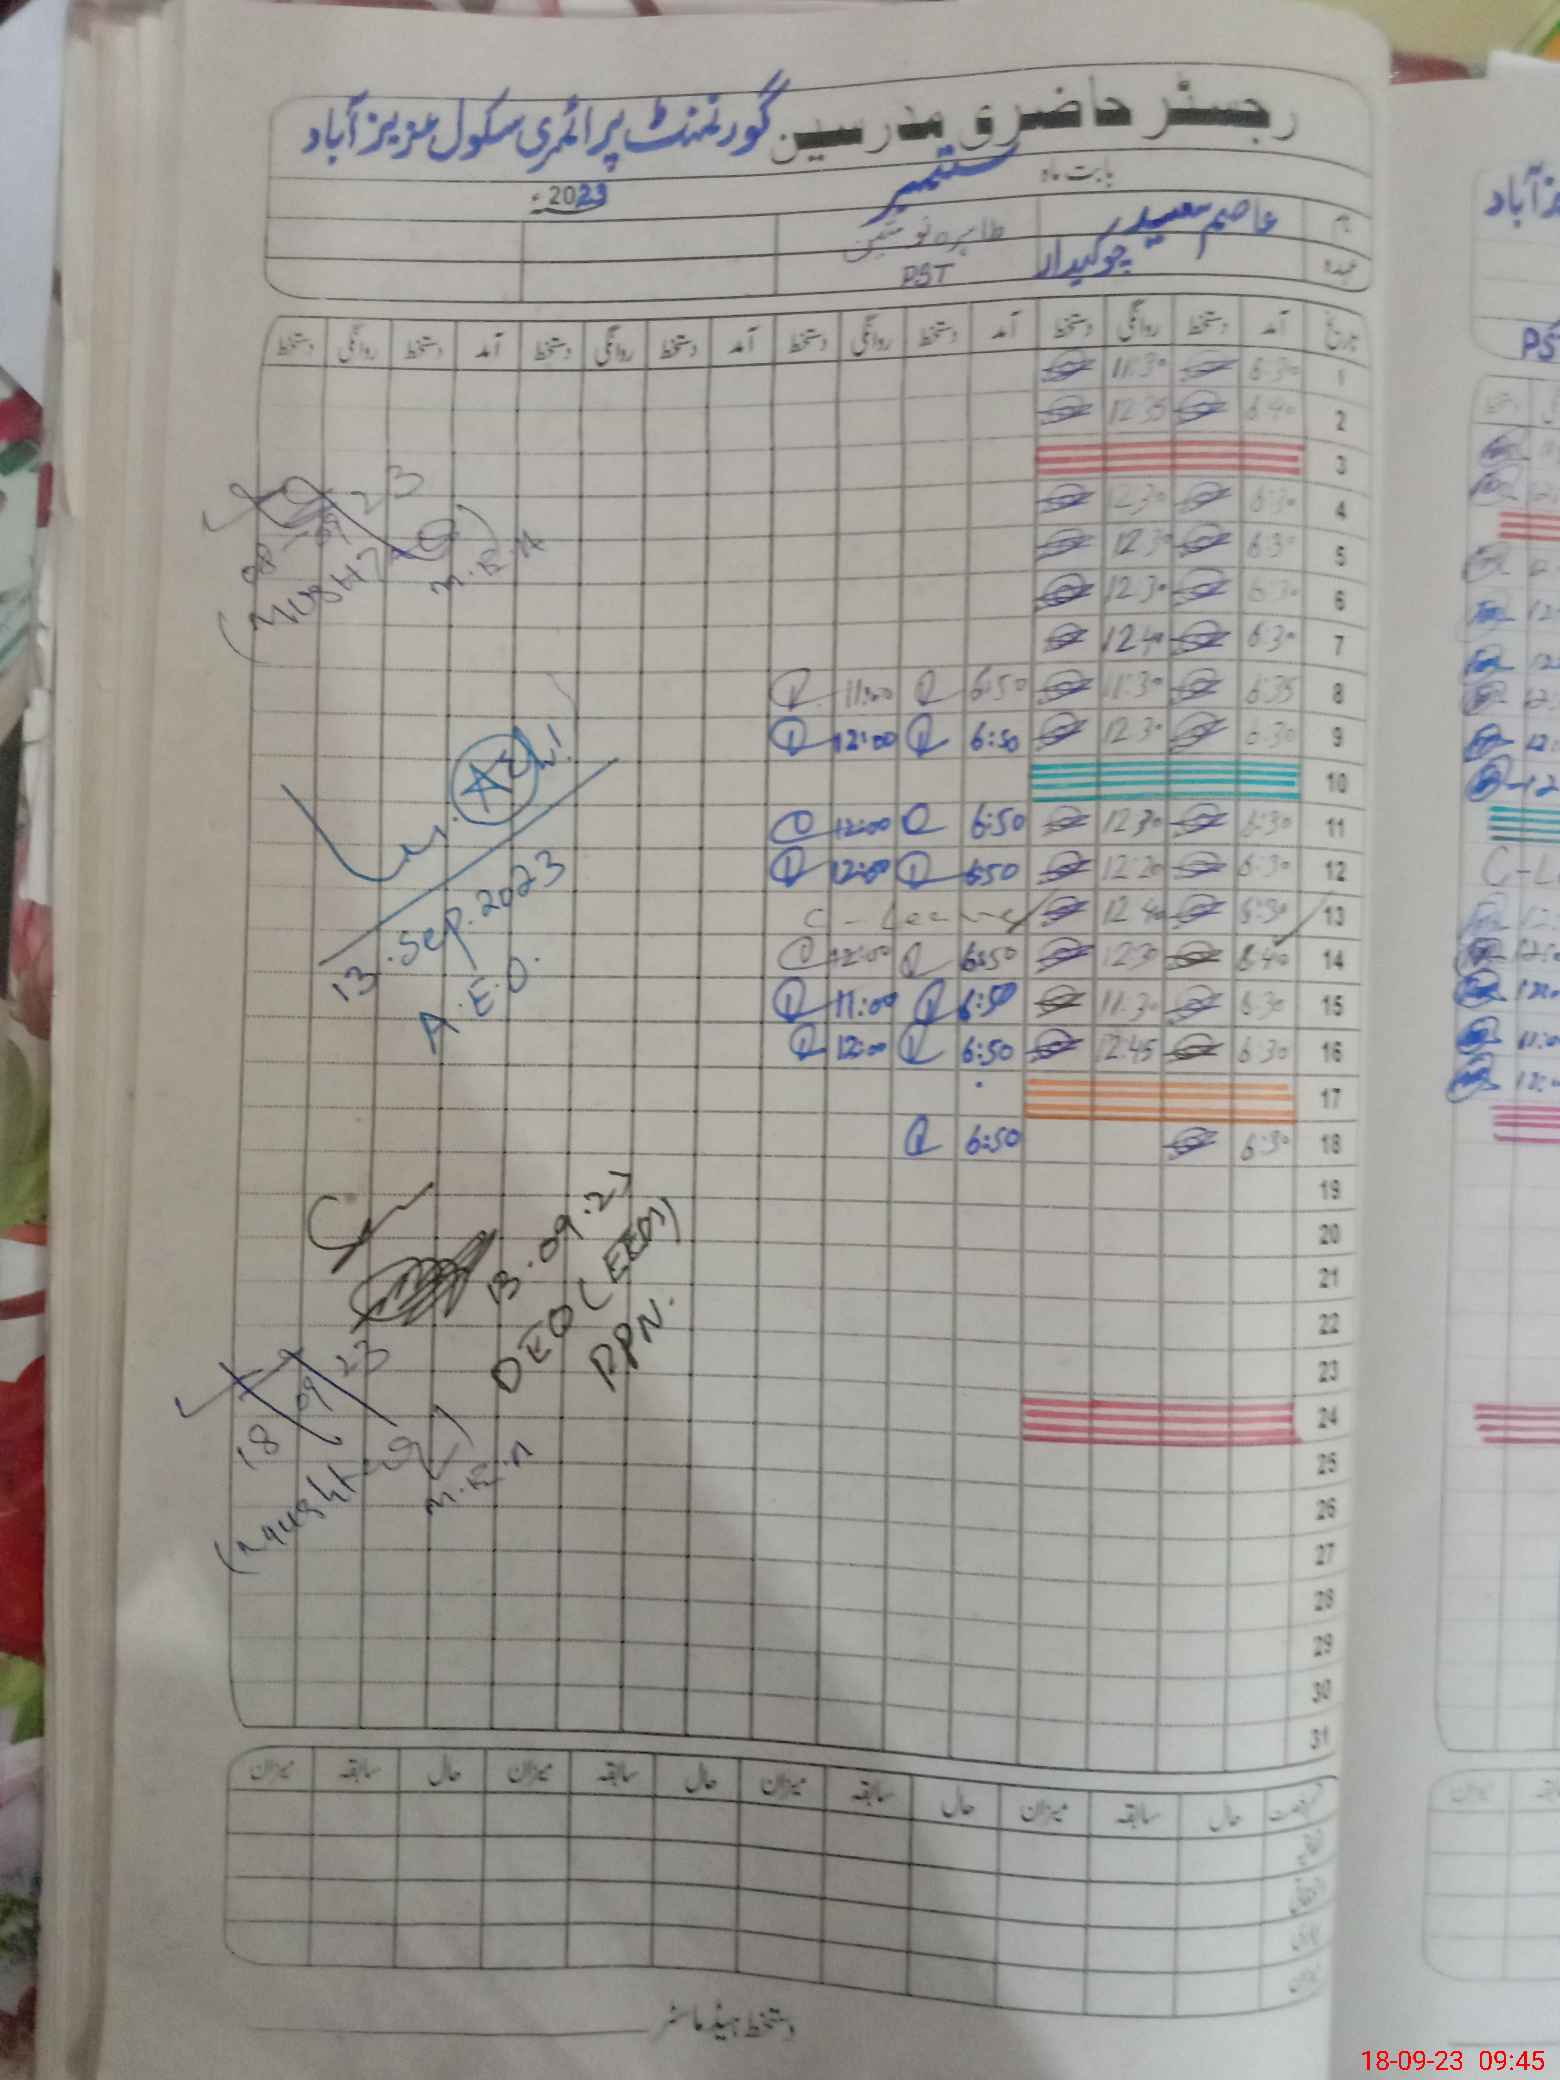 رجسٹر حاضری مدرسین گورنمنٹ پرائمری سکول عزیز آباد
بابت ماہ ستمبر 2023ء
نام عاصم سعید طاہرہ نو شین
عہدہ چوکیدار PST
تاریخ آمد دستخط روانگی دستخط آمد دستخط روانگی دستخط آمد دستخط روانگی دستخط آمد دستخط روانگی دستخط
1 6:30 11:30
2 6:40 12:35
3
4 6:30 12:30
5 6:30 12:30
6 6:30 12:30
7 6:30 12:40
8 6:35 11:30 6:50 11:00
9 6:30 12:30 6:50 12:00
10
11 6:30 12:30 6:50 12:00
12 6:30 12:20 6:50 12:00
13 6:30 12:40 C-Leave
14 6:40 12:30 6:50 12:00
15 6:30 11:30 6:50 11:00
16 6:30 12:45 6:50 12:00
17
18 6:30 6:50
19
20
21
22
23
24
25
26
27
28
29
30
31
08-09-23
M.E.A
13.Sep.2023
A.E.O.
13.09.23
DEO (EEM)
RPN.
18 09 23
M.E.A
حال سابقہ میزان حال سابقہ میزان حال سابقہ میزان حال سابقہ میزان
دستخط ہیڈ ماسٹر
آباد
PS
C-Le
18-09-23 09:45